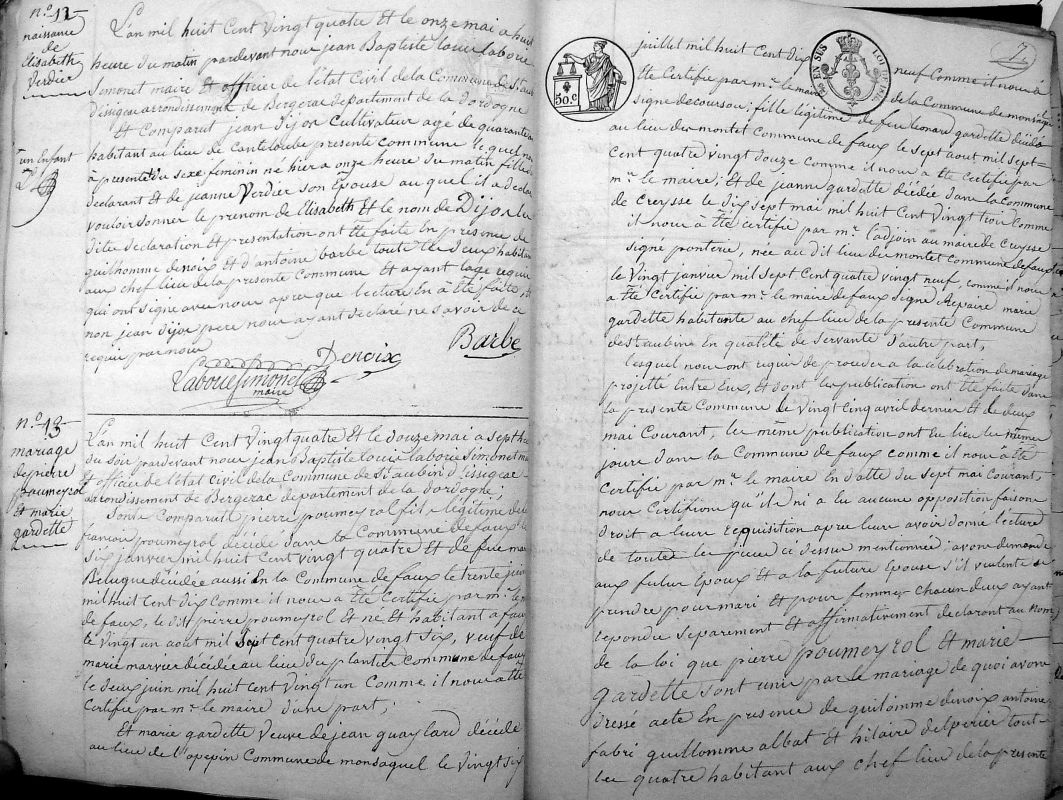 n.o 12
naissance
de
Elisabeth
Verdier
un Enfant
L'an mil huit Cent Vingt quatre Et le onze mai a huit
heure du matin pardevant nous jean Baptiste louis laborie
Simonet maire et officier de l'état Civil de la Commune de St aubin
d'issigeac arondissement de Bergerac departement de la dordogne
Et Comparut jean dijos Cultivateur agé de quarante
habitant au lieu de Canteloube presente Commune lequel nous
à presenté du sexe feminin né hier a onze heure du matin fille
declarant et de jeanne Verdier son Epouse auquel il a declaré
vouloir donner le prenom de Elisabeth et le nom de Dijos les
dite declaration et presentation ont été faite En presence de
guilhomme denoix et d'antoine barbe toute le deux habitant
aux chef lieu de la presente Commune et ayant lage requi
qui ont signé avec nous apres que lecture En a été faite, et
non jean dijos pere nous ayant declaré ne savoir de ce
requi par nous
Barbe
Denoix
Laborie Simonet
maire
n.o 13
mariage
de pierre
poumeyrol
Et marie
gardette
L'an mil huit Cent Vingt quatre Et le douze mai a sept heure
du soir pardevant nous jean Baptiste louis laborie Simonet maire
et officier de l'état Civil de la Commune de St aubin d'issigeac
arondissement de Bergerac departement de la dordogne,
Sont Comparutt pierre poumeyrol fils legitime de
francois poumeyrol décidé dans la Commune de faux le
six janvier mil huit Cent vingt quatre et de feue marie
Beluque décidée aussi En la Commune de faux le trente juin
mil huit Cent dix comme il nous a été Certifié par mr le maire
de faux, le dit pierre poumeyrol Et né Et habitant a faux
le vingt un aout mil Sept Cent quatre vingt six, veuf de
marie marvier décidée au lieu du plantier Commune de faux
le deux juin mil huit Cent vingt un Comme il nous a été
Certifié par mr le maire d'une part,
Et marie gardette Veuve de jean quaylard décidé
au lieu de l'opepin Commune de monsaquel le vingt six
7
50c
EN SUS
juillet mil huit Cent dix neuf Comme il nous à
été Certifié par mr le maire de la Commune de monsaquel
signé decoursou; fille légitime de feu leonard gardette décidé
au lieu du montet Commune de faux le sept aout mil sept
Cent quatre vingt douze comme il nous a été Certifié par
mr le maire; Et de jeanne gardette décidée dans la Commune
de Creysse le dix sept mai mil huit Cent vingt trois Comme
il nous à été Certifié par mr l'adjoin au maire de Creysse
signé ponterie, née au dit lieu du montet Commune de faux
le Vingt janvier mil sept Cent quatre vingt neuf, comme il nous
a été Certifié par mr le maire de faux signé Repaire marie
gardette habitante au chef lieu de la presente Commune
de St aubin En qualité de servante d'autre part,
lesquel nous ont requi de proceder a la célébration du mariage
projetté Entre Eux, Et dont les publication ont été faite dans
la presente Commune le Vingt Cinq avril dernier et de deux
mai Courant, les même publication ont eu lieu les même
jours dans la Commune de faux comme il nous a été
Certifié par mr le maire En datte du sept mai Courant,
nous Certifions qu'il ni a eu aucune opposition faisons
droit a leurs requisition apres leurs avoir donné lecture
de toutes les pieces ci dessus mentionnée; avons demandé
aux futur Epoux Et a la future Epouse s'il veulent se
prendre pour mari et pour femme; chacun deux ayant
repondu separement et affirmativement declaront au nom
de la loi que pierre poumeyrol Et marie
Gardette sont unis par le mariage de quoi avons
dressé acte En presence de guilomme denoix antoine
fabri guillomme albat et hilaire delperier tout
les quatre habitant aux chef lieu de la presente